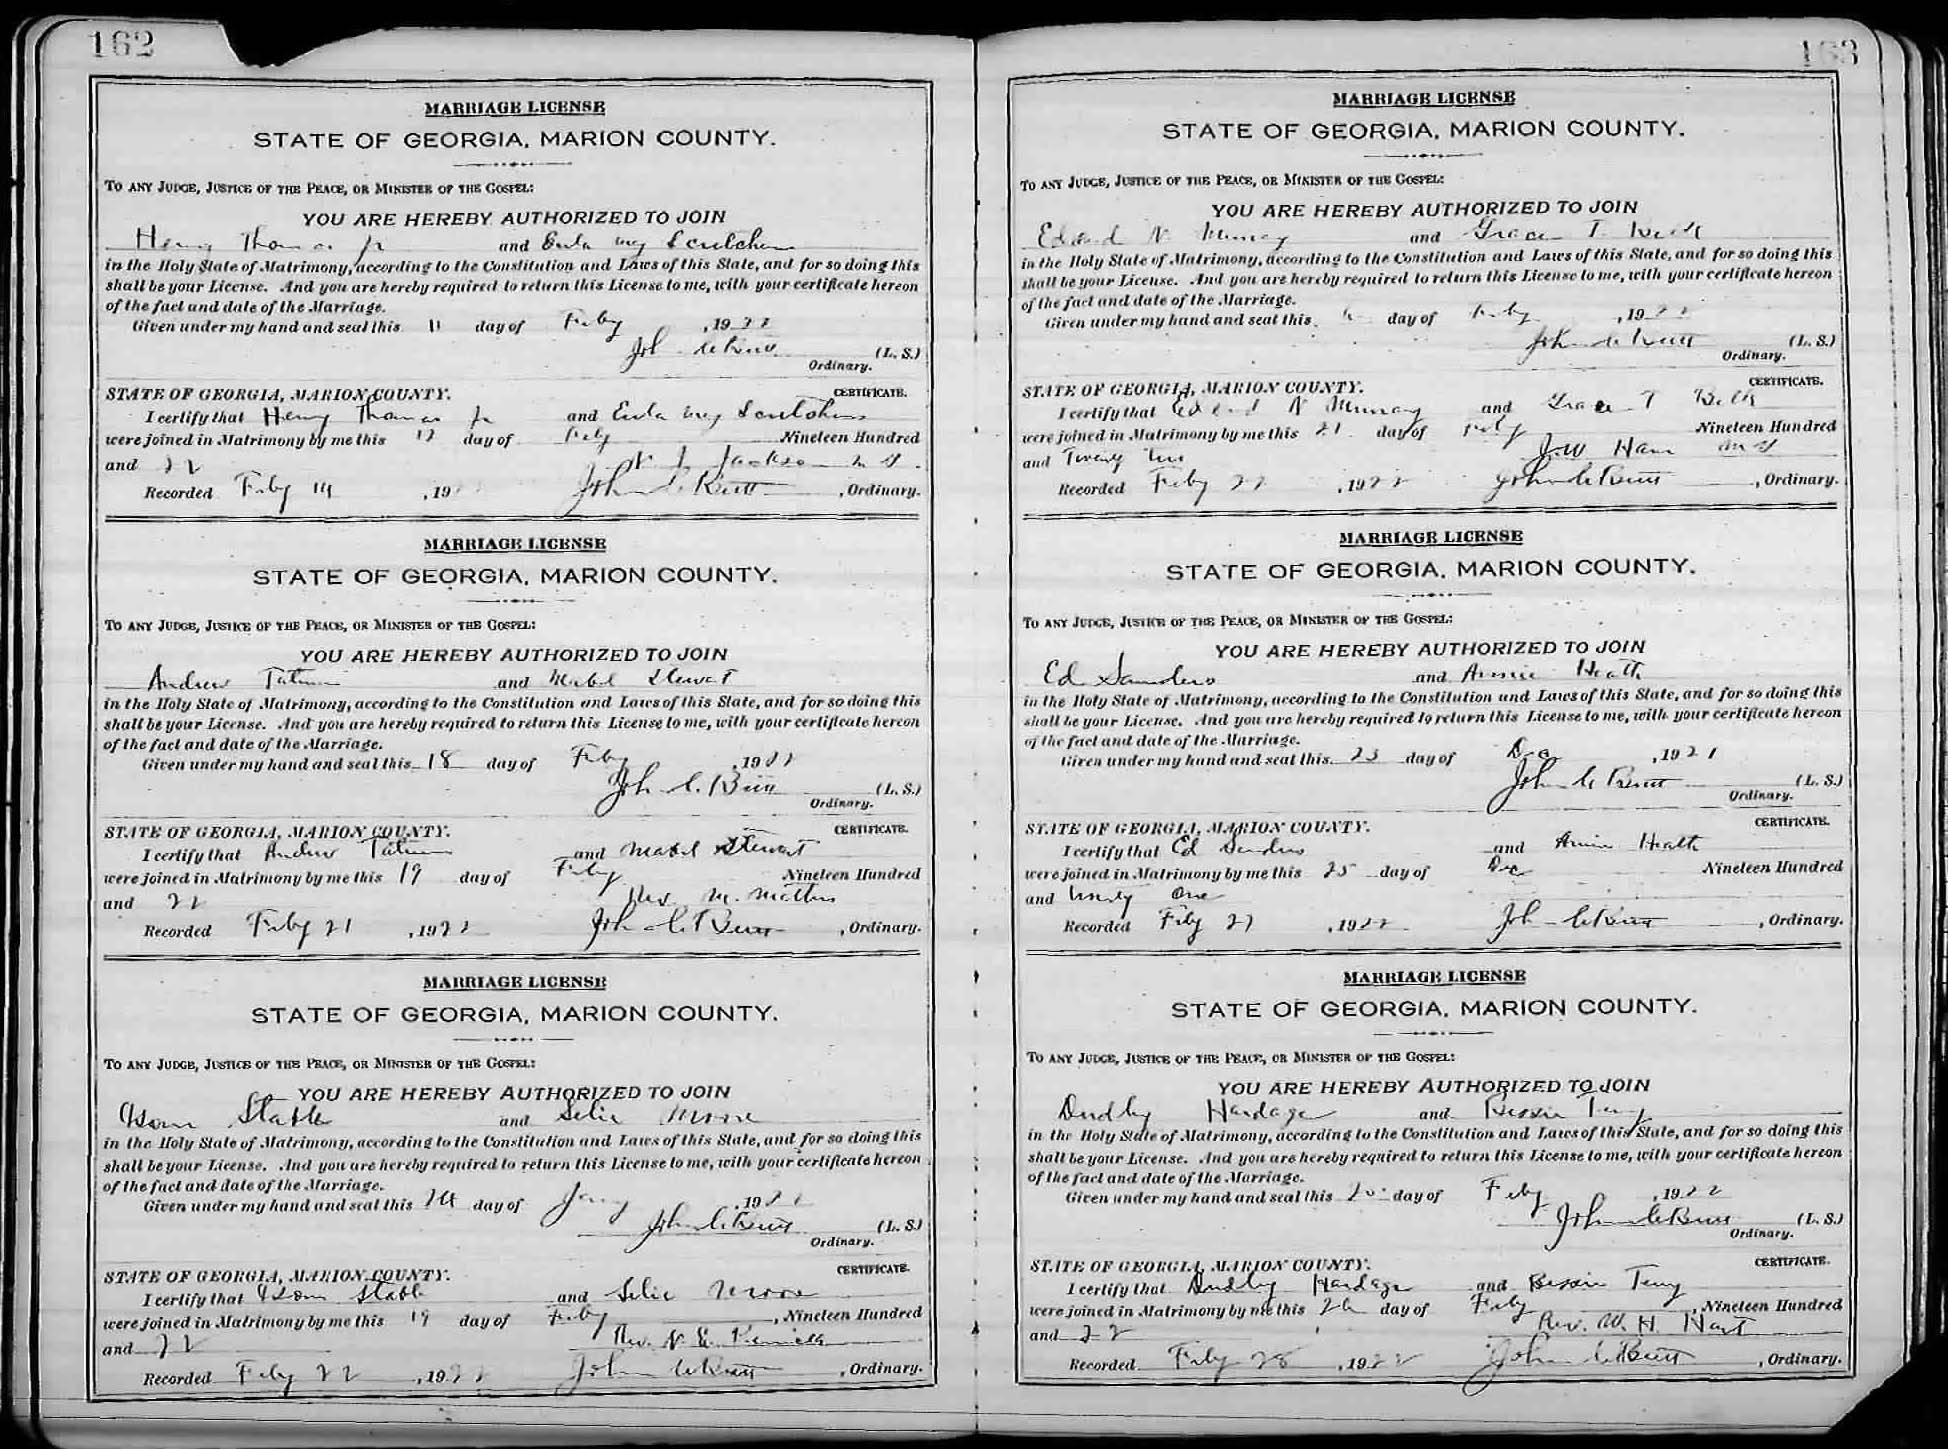 162
MARRIAGE LICENSE
STATE OF GEORGIA, MARION COUNTY.
TO ANY JUDGE, JUSTICE OF THE PEACE, OR MINISTER OF THE GOSPEL:
YOU ARE HEREBY AUTHORIZED TO JOIN
Henry Thomas Jr and Eula May Scutchens
in the Holy State of Matrimony, according to the Constitution and Laws of this State, and for so doing this
shall be your License. And you are hereby required to return this License to me, with your certificate hereon
of the fact and date of the Marriage.
Given under my hand and seal this 11 day of Feby , 1922
John C Butt (L. S.)
Ordinary.
STATE OF GEORGIA, MARION COUNTY. CERTIFICATE.
I certify that Henry Thomas Jr and Eula May Scutchens
were joined in Matrimony by me this 12 day of Feby Nineteen Hundred
and 22 Jackson M G.
Recorded Feby 14 , 1922 John C Butt , Ordinary.
MARRIAGE LICENSE
STATE OF GEORGIA, MARION COUNTY.
TO ANY JUDGE, JUSTICE OF THE PEACE, OR MINISTER OF THE GOSPEL:
YOU ARE HEREBY AUTHORIZED TO JOIN
Andrew Tatum and Mabel Stewart
in the Holy State of Matrimony, according to the Constitution and Laws of this State, and for so doing this
shall be your License. And you are hereby required to return this License to me, with your certificate hereon
of the fact and date of the Marriage.
Given under my hand and seal this 18 day of Feby , 1922
John C. Butt (L. S.)
Ordinary.
STATE OF GEORGIA, MARION COUNTY. CERTIFICATE.
I certify that Andrew Tatum and Mabel Stewart
were joined in Matrimony by me this 19 day of Feby Nineteen Hundred
and 22 Rev. M. Mathis
Recorded Feby 21 , 1922 John C Butt , Ordinary.
MARRIAGE LICENSE
STATE OF GEORGIA, MARION COUNTY.
TO ANY JUDGE, JUSTICE OF THE PEACE, OR MINISTER OF THE GOSPEL:
YOU ARE HEREBY AUTHORIZED TO JOIN
Isom Stable and Selie Moore
in the Holy State of Matrimony, according to the Constitution and Laws of this State, and for so doing this
shall be your License. And you are hereby required to return this License to me, with your certificate hereon
of the fact and date of the Marriage.
Given under my hand and seal this 24 day of Jany , 1922
John C Butt (L. S.)
Ordinary.
STATE OF GEORGIA, MARION COUNTY. CERTIFICATE.
I certify that Isom Stable and Selie Moore
were joined in Matrimony by me this 19 day of Feby , Nineteen Hundred
and 22 Rev. N. E.
Recorded Feby 22 , 1922 John C Butt , Ordinary.
163
MARRIAGE LICENSE
STATE OF GEORGIA, MARION COUNTY.
TO ANY JUDGE, JUSTICE OF THE PEACE, OR MINISTER OF THE GOSPEL:
YOU ARE HEREBY AUTHORIZED TO JOIN
Edward N. Murray and Grace T. Belk
in the Holy State of Matrimony, according to the Constitution and Laws of this State, and for so doing this
shall be your License. And you are hereby required to return this License to me, with your certificate hereon
of the fact and date of the Marriage.
Given under my hand and seal this day of Feby , 1922
John C Butt (L. S.)
Ordinary.
STATE OF GEORGIA, MARION COUNTY. CERTIFICATE.
I certify that Edward N Murray and Grace T Belk
were joined in Matrimony by me this 21 day of Feby Nineteen Hundred
and Twenty two J.W Ham M G
Recorded Feby 22 , 1922 John C Butt , Ordinary.
MARRIAGE LICENSE
STATE OF GEORGIA, MARION COUNTY.
TO ANY JUDGE, JUSTICE OF THE PEACE, OR MINISTER OF THE GOSPEL:
YOU ARE HEREBY AUTHORIZED TO JOIN
Ed Saunders and Annie Heath
in the Holy State of Matrimony, according to the Constitution and Laws of this State, and for so doing this
shall be your License. And you are hereby required to return this License to me, with your certificate hereon
of the fact and date of the Marriage.
Given under my hand and seal this 23 day of Dec , 1921
John C Butt (L. S.)
Ordinary.
STATE OF GEORGIA, MARION COUNTY. CERTIFICATE.
I certify that Ed Sanders and Annie Heath
were joined in Matrimony by me this 25 day of Dec Nineteen Hundred
and Twenty One
Recorded Feby 27 , 1922 John C Butt , Ordinary.
MARRIAGE LICENSE
STATE OF GEORGIA, MARION COUNTY.
TO ANY JUDGE, JUSTICE OF THE PEACE, OR MINISTER OF THE GOSPEL:
YOU ARE HEREBY AUTHORIZED TO JOIN
Dudley Hardage and Bessie Terry
in the Holy State of Matrimony, according to the Constitution and Laws of this State, and for so doing this
shall be your License. And you are hereby required to return this License to me, with your certificate hereon
of the fact and date of the Marriage.
Given under my hand and seal this 20 day of Feby , 1922
John C Butt (L. S.)
Ordinary.
STATE OF GEORGIA, MARION COUNTY. CERTIFICATE.
I certify that Dudley Hardage and Bessie Terry
were joined in Matrimony by me this 26 day of Feby , Nineteen Hundred
and 22 Rev. W. H. Hart
Recorded Feby 28 , 1922 John C Butt , Ordinary.